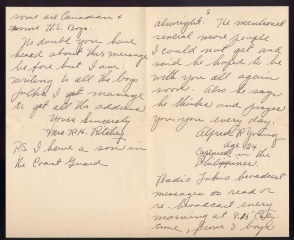 some are Canadian &
some U.S. Boys.
No doubt you have
heard about this message
before but I am
writing to all the boys
folks I get
to get all the address
Yours Sincerely
Mrs. R.H.
P.S I have a son in
the Coast Guard
alwright. He mentioned
several more people
I could not get and
said he hoped to be
with you all again
soon. Also he says
he thinks and prays
for you every day.
Alfred R Young
age 24
Captured in the
Philippines
Radio Tokio broadcast
messages on read or
re-broadcast every
morning at
time, from 3 boys